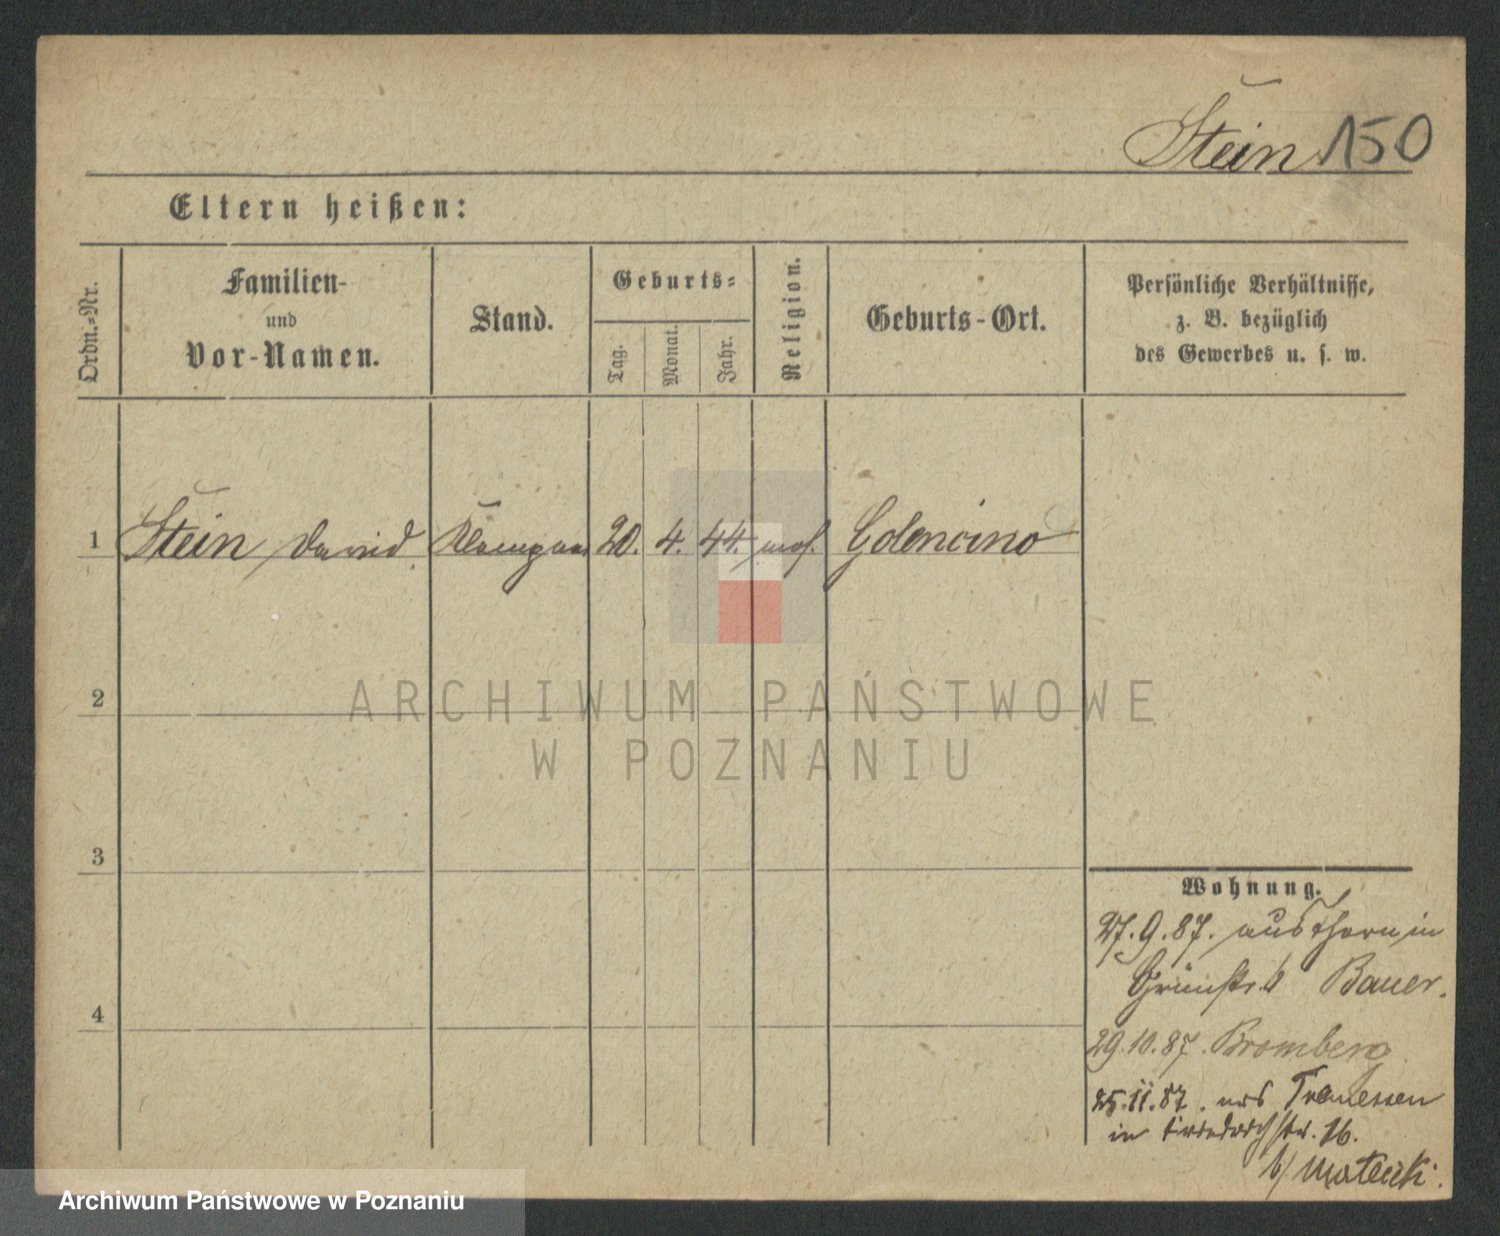 Stein 150
Eltern heißen:
Ordn.-Nr.
Familien-
und
Vor-Namen.
Stand.
Geburts-
Tag.
Monat.
Jahr.
Religion.
Geburts-Ort.
Persönliche Verhältnisse,
z. B. bezüglich
des Gewerbes u. s. w.
1 Stein David Klempner 20. 4. 44. mos.
2
3
4
Wohnung.
27. 9. 87. aus Thorn in
Grünstr. Bauer.
29. 10. 87. Bromberg
25. 11. 87. aus Tremessen
in Friedrichstr. 16.
b/ Matecki.
ARCHIWUM PAŃSTWOWE
W POZNANIU
Archiwum Państwowe w Poznaniu